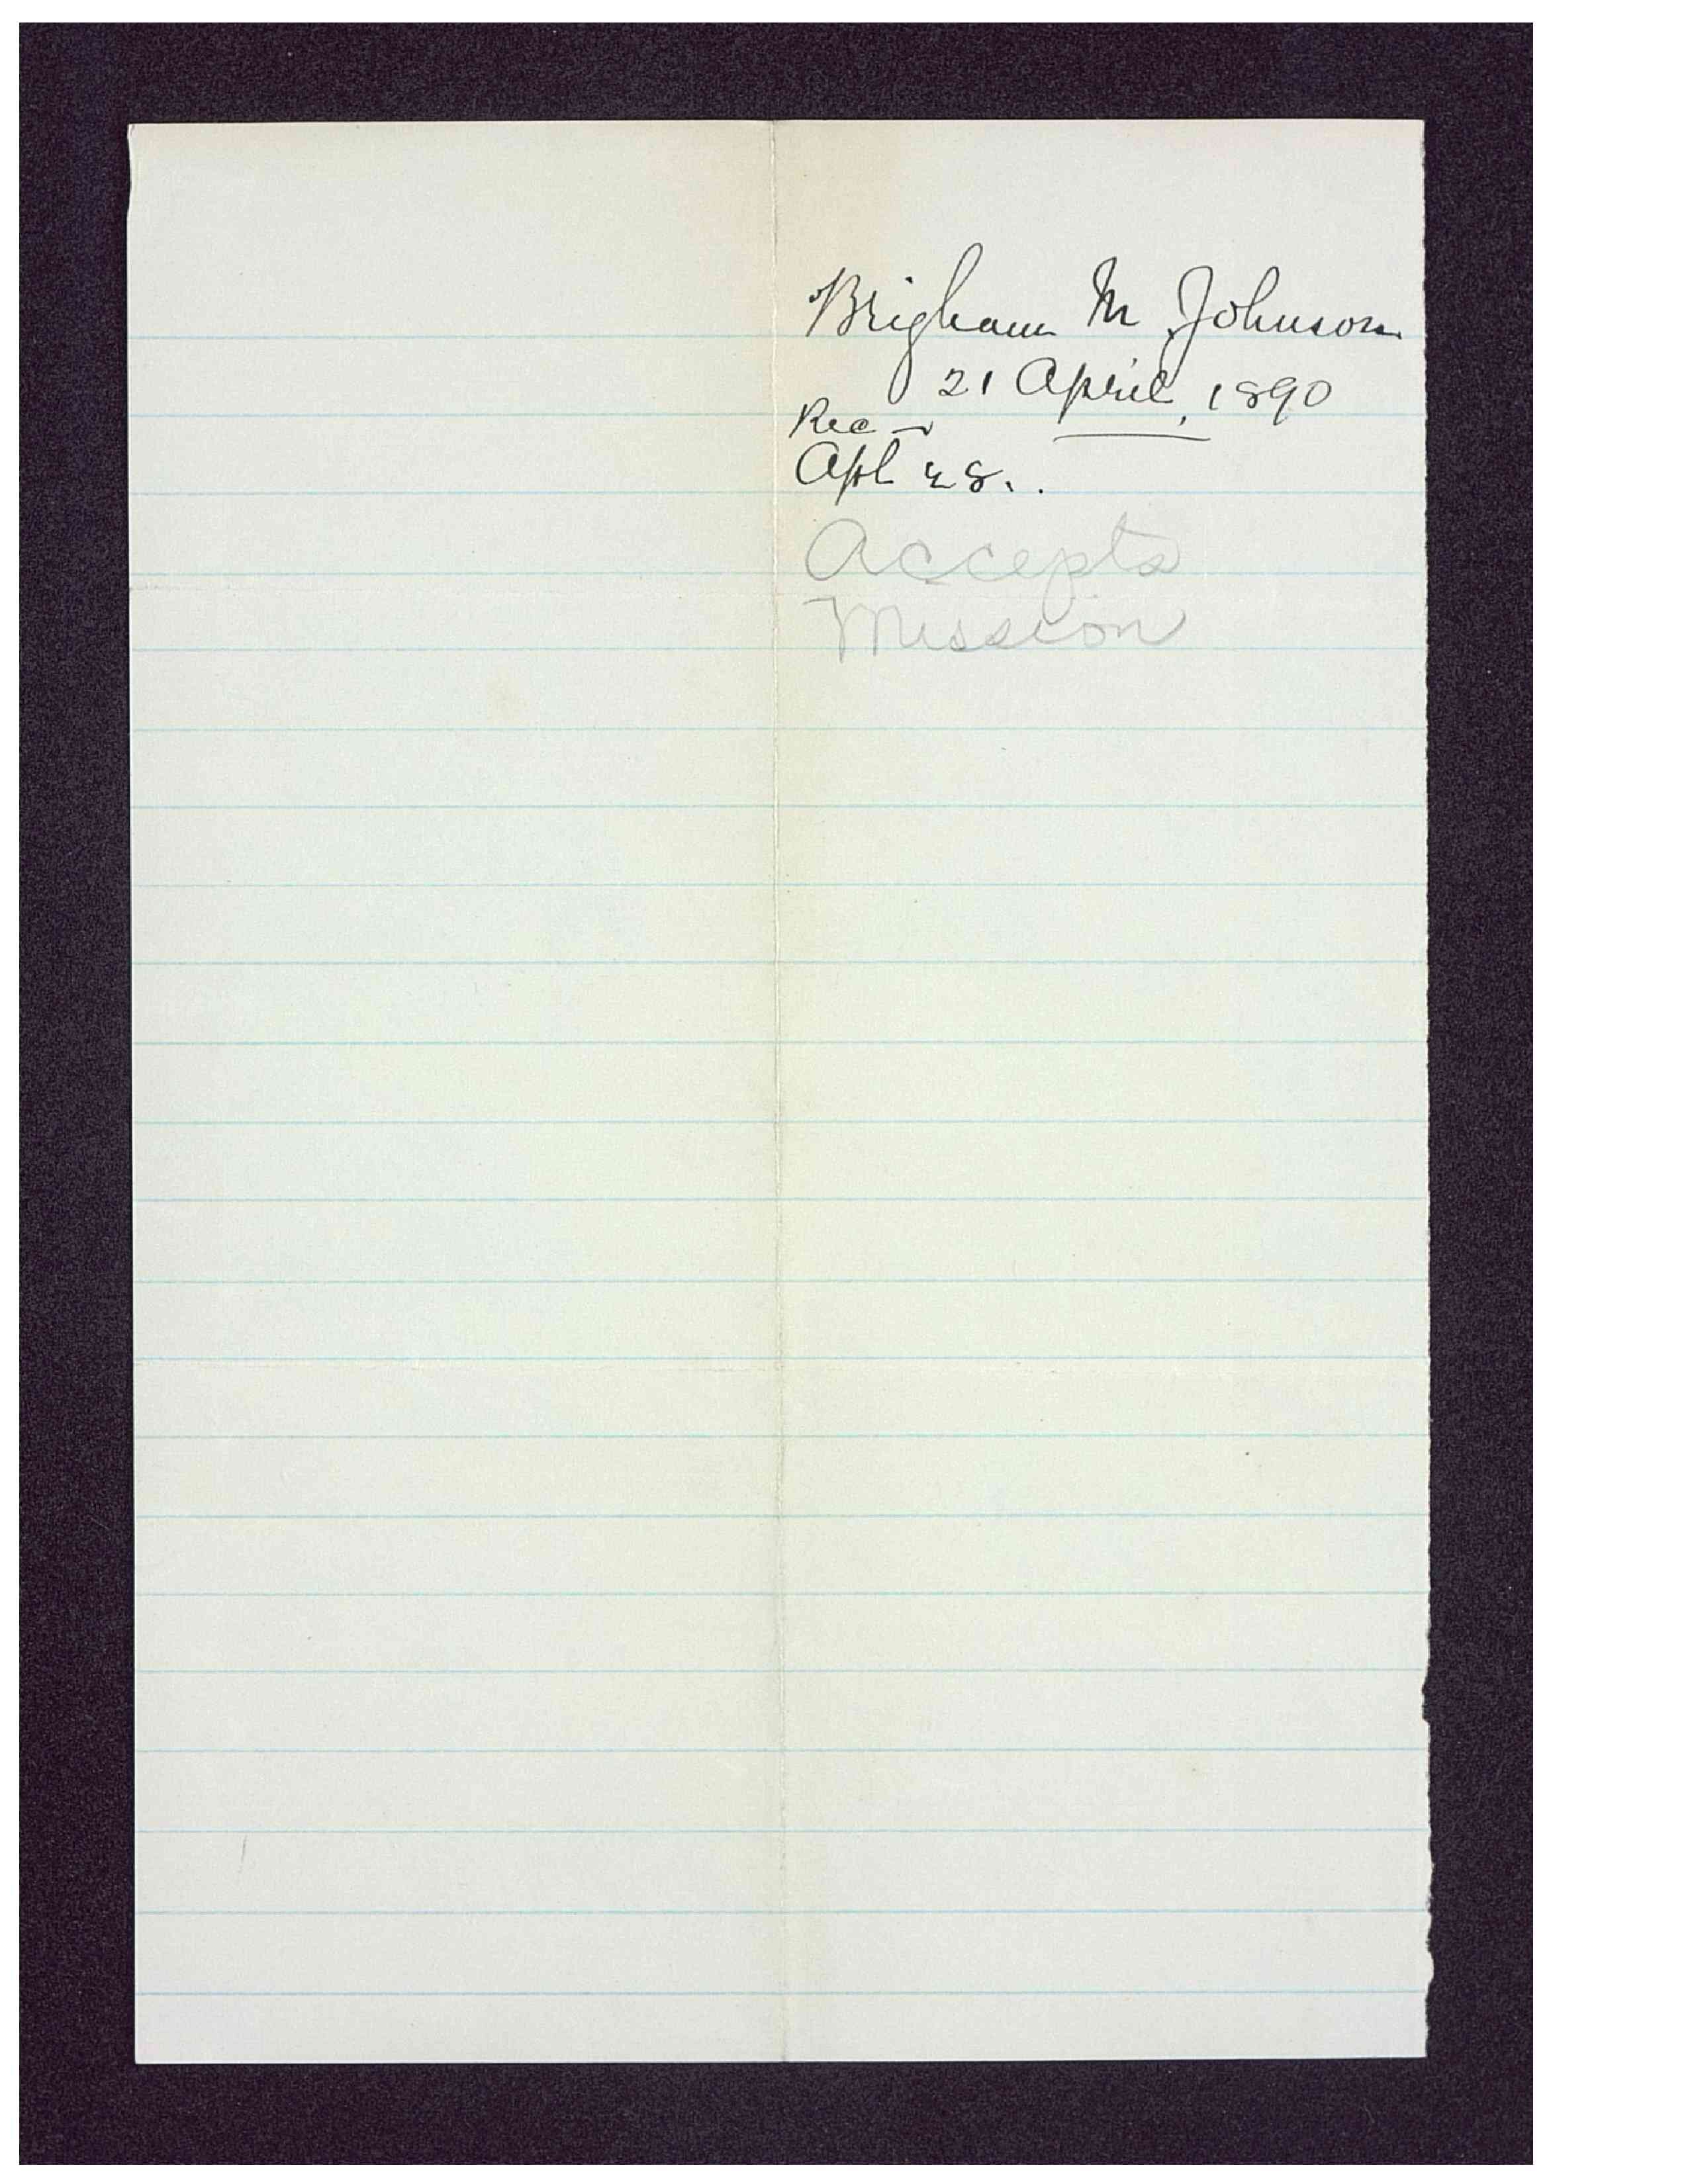 Brigham M Johnson
21 April, 1890
Rec
Apl 28.
Accepts
Mission